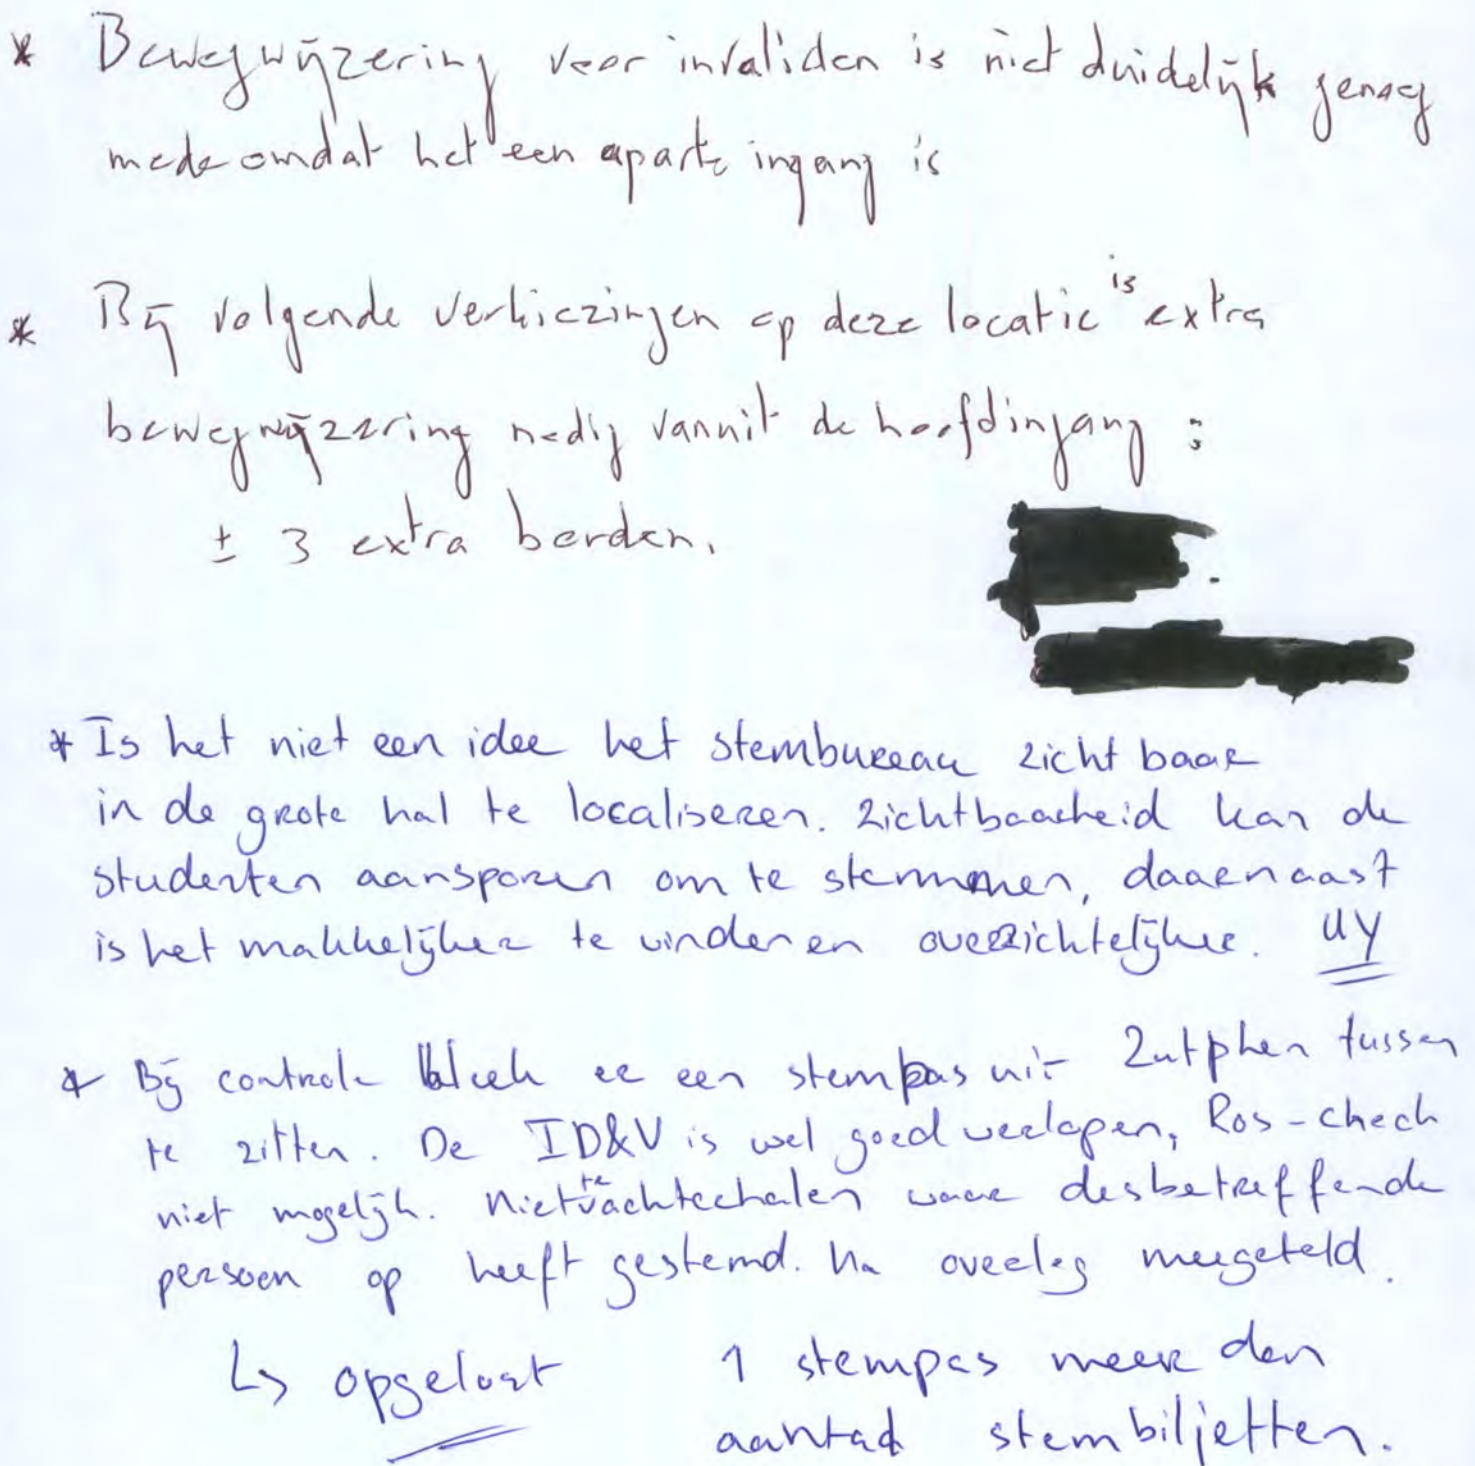 * Bewegwijzering voor invaliden is niet duidelijk genoeg
mede omdat het een aparte ingang is
* Bij volgende verkiezingen op deze locatie is extra
bewegwijzering nodig vanuit de hoofdingang :
± 3 extra borden.
* Is het niet een idee het stembureau zichtbaar
in de grote hal te localiseren. Zichtbaarheid kan de
studenten aansporen om te stemmen, daarnaast
is het makkelijker te vinden en overzichtelijker. UY
* Bij controle bleek er een stempas uit Zutphen tussen
te zitten. De ID&V is wel goed verlopen, Ros-check
niet mogelijk. Niet te achterhalen waar desbetreffende
persoon op heeft gestemd. Na overleg meegeteld.
↳ opgelost 1 stempas meer dan
aantal stembiljetten.